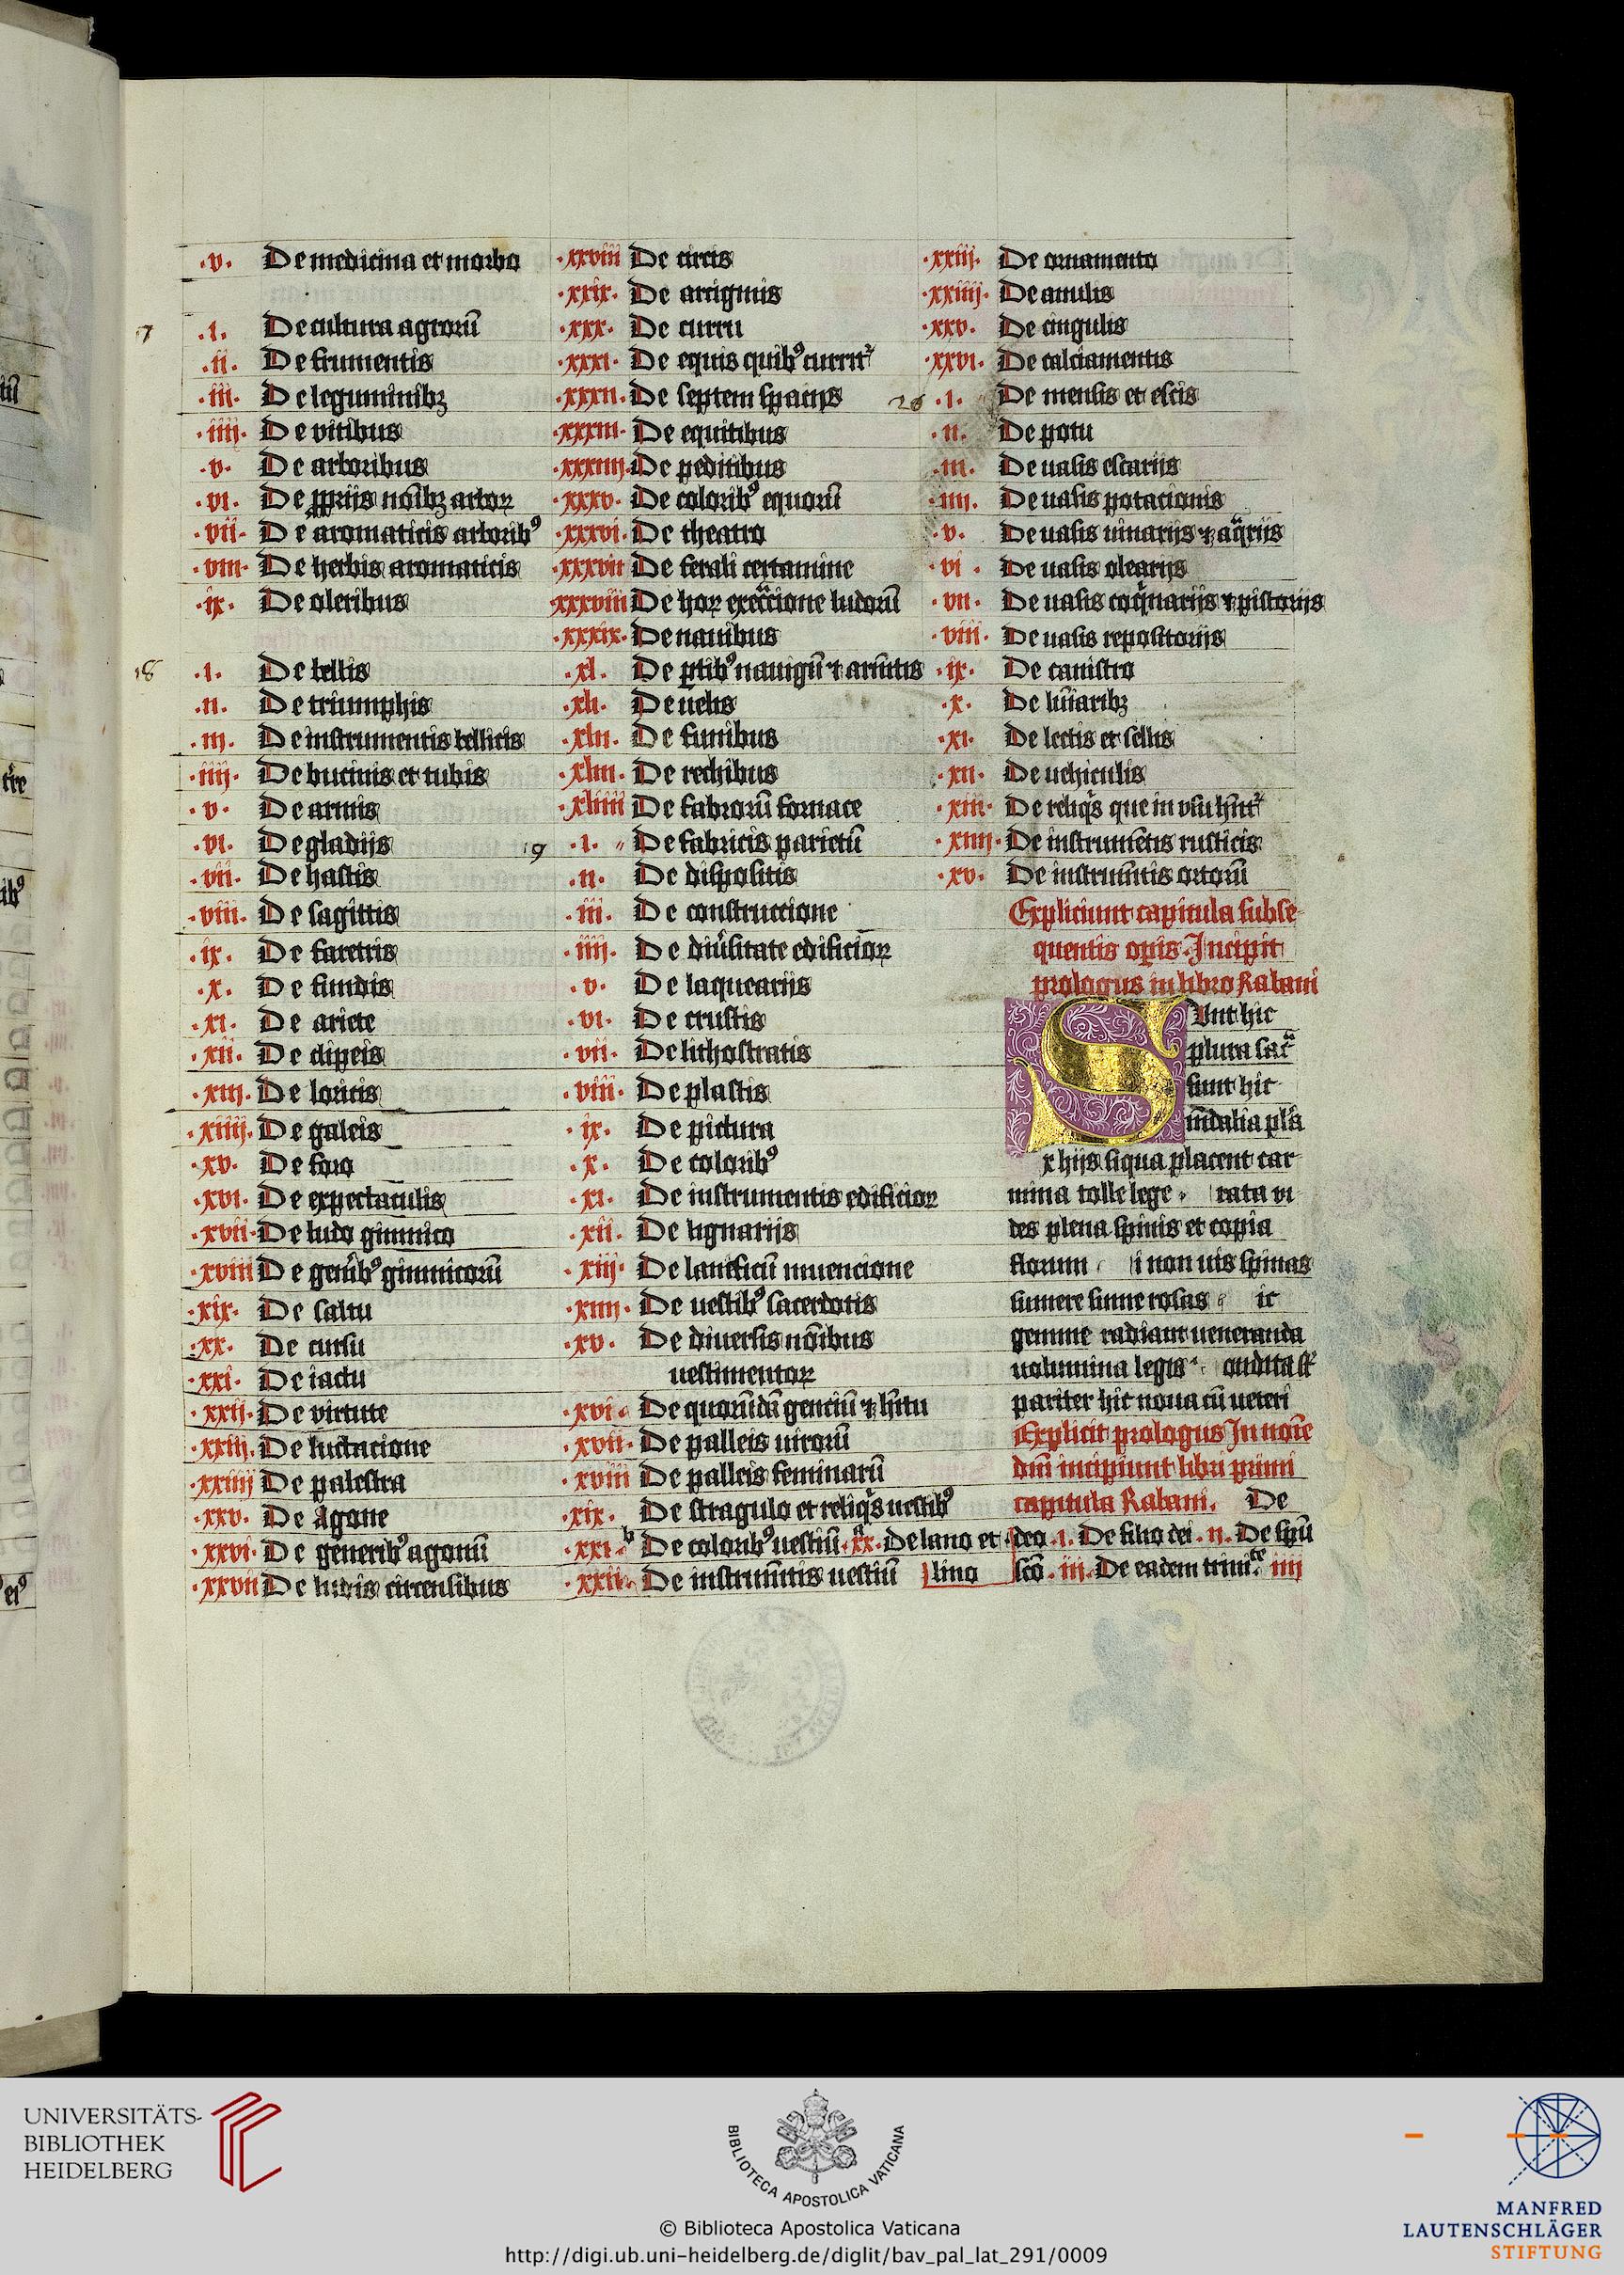 ·v· De medicina et morbo
17 ·i· De cultura agrorū
·ii· De frumentis
·iii· De leguminibꝫ
·iiij· De vitibus
·v· De arboribus
·vi· De ꝓprijs noībꝫ arborꝝ
·vii· De aromaticis arboribꝰ
·viii· De herbis aromaticis
·ix· De oleribus
18 ·i· De bellis
·ii· De triumphis
·iii· De instrumentis bellicis
·iiij· De bucinis et tubis
·v· De armis
·vi· De gladijs
·vii· De hastis
·viii· De sagittis
·ix· De faretris
·x· De fundis
·xi· De ariete
·xii· De clipeis
·xiij· De loricis
·xiiij· De galeis
·xv· De foro
·xvi· De expectaculis
·xvii· De ludo gimnico
·xviii De genībꝰ gimnicorū
·xix· De saltu
·xx· De cursu
·xxi· De iactu
·xxij· De virtute
·xxiij· De luctacione
·xxiiij De palestra
·xxv· De Agone
·xxvi· De generibꝰ agonū
·xxvii De ludis circensibus
·xxviii De circis
·xxix· De arrigmis
·xxx· De curru
·xxxi· De equis quibꝰ currit᷑
·xxxii· De septem spacijs
·xxxiii· De equitibus
·xxxiiii· De peditibus
·xxxv· De coloribꝰ equorū
·xxxvi· De theatro
·xxxvii De ferali certamine
·xxxviii De horꝝ exeᷓccione ludorū
·xxxix· De nauibus
·xl· De ꝑtibꝰ nauigū ⁊ armītis
·xli· De uelis
·xlii· De funibus
·xliii· De rechibus
·xliiii De fabrorū fornace
19 ·i· De fabricis parietū
·ii· De dispositis
·iii· De construccione
·iiij· De diūsitate edificiorꝝ
·v· De laqueariis
·vi· De crustis
·vii· De lithostratis
·viii· De plastis
·ix· De pictura
·x· De coloribꝰ
·xi· De instrumentis edificiorꝝ
·xii· De lignarijs
·xiij· De lanificii inuencione
·xiiii· De uestibꝰ sacerdotis
·xv· De diuersis noībus
uestimentorꝝ
·xvi· De quorūdā genciū ⁊ hītu
·xvii· De palleis uirorū
·xviii De palleis feminarū
·xix· De stragulo et reliqͥs uestibꝰ
·xxi· b De coloribꝰ uestiū· a xx· De lano et
·xxii· De instrumītis uestiū lino
·xxiij· De ornamento
·xxiiij· De anulis
·xxv· De cingulis
·xxvi· De calciamentis
20 ·i· De mensis et escis
·ii· De potu
·iii· De uasis escariis
·iiii· De uasis potacionis
·v· De uasis uinarijs ⁊ aqᷓrijs
·vi· De uasis olearijs
·vii· De uasis coqͥnarijs ⁊ pistorijs
·viii· De uasis repositorijs
·ix· De canistro
·x· De lūiaribꝫ
·xi· De lectis et sellis
·xii· De uehiculis
·xiii· De reliqͥs que in vsu hn̄t᷑
·xiiii· De instrumētis rusticis
·xv· De instrumītis ortorū
Expliciunt capitula subse-
quentis oꝑis· Incipit
prologus in libro Rabani
SVnt hic
plura sacᷓ
sunt hic
mūdalia pl̄a
x hijs siqua placent car-
mina tolle lege · rata vi
des plena spinis et copia
florum i non uis spinas
sumere sume rosas ic
gemme radiant ueneranda
uolumina legis · ondita st᷑
pariter hic noua cū ueteri
Explicit prologus In noīe
dn̄i incipiunt libri primi
capitula Rabani. De
deo ·i· De filio dei ·ii· De spū
scō ·iii· De eadem trinitᵉ iiii
UNIVERSITÄTS-
BIBLIOTHEK
HEIDELBERG
BIBLIOTECA APOSTOLICA VATICANA
© Biblioteca Apostolica Vaticana
http://digi.ub.uni-heidelberg.de/diglit/bav_pal_lat_291/0009
MANFRED
LAUTENSCHLÄGER
STIFTUNG